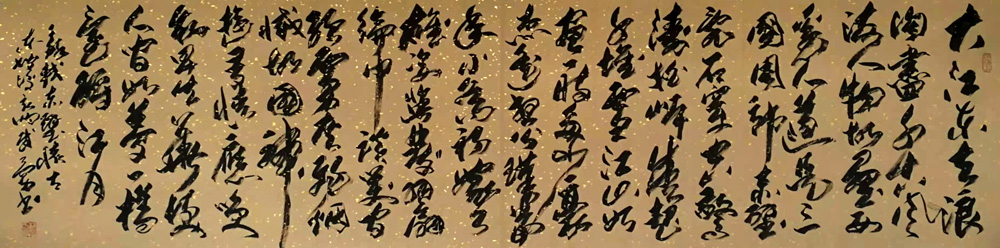 大江东去浪
淘盡千古風
流人物故壘西
邊人道是三
國周郎赤壁
亂石穿空驚
濤拍岸捲起
千堆雪江山如
畫一時多少豪
傑遙想公瑾當
年小喬初嫁了
雄姿英發羽扇
綸巾談笑間
強虜灰飛煙
滅故國神
遊多情應笑
我早生華髮
人間如夢一樽
還酹江月
赤壁懷古